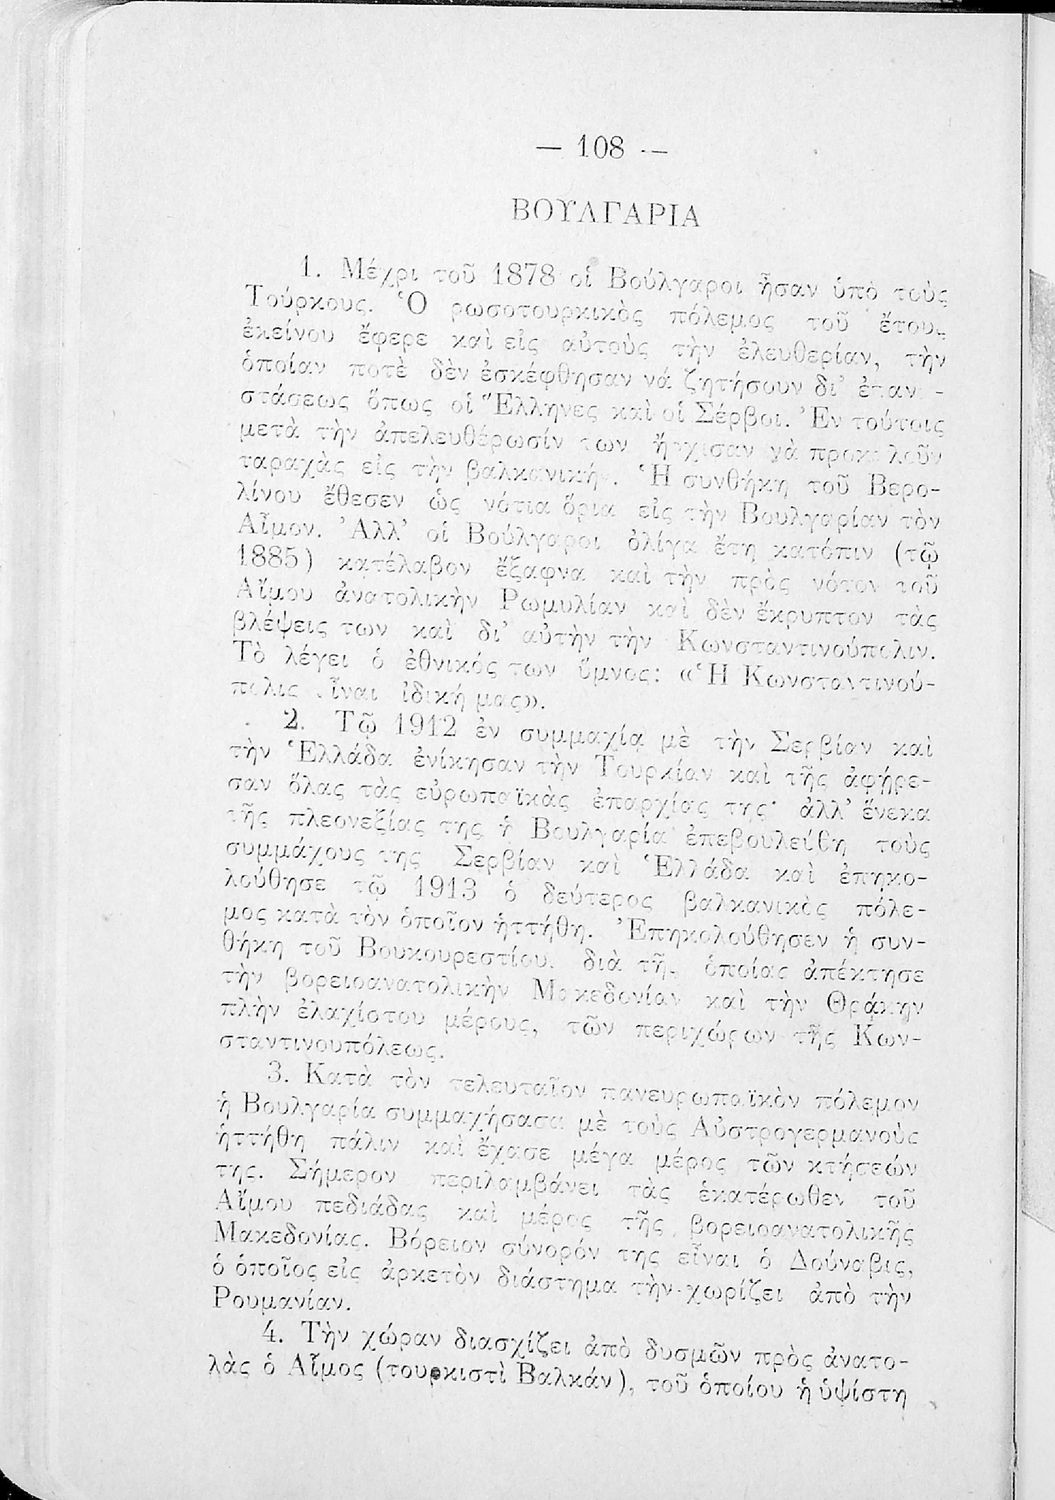 — 108 —
ΒΟΥΛΓΑΡΙΑ
1. Μέχρι τοῦ 1878 οἱ Βούλγαροι ἦσαν ὑπὸ τοὺς
Τούρκους. Ὁ ρωσοτουρκικὸς πόλεμος τοῦ ἔτους
ἐκείνου ἔφερε καὶ εἰς αὐτοὺς τὴν ἐλευθερίαν, τὴν
ὁποίαν ποτὲ δὲν ἐσκέφθησαν νά ζητήσουν δι' ἐπαν-
στάσεως ὅπως οἱ Ἕλληνες καὶ οἱ Σέρβοι. Ἐν τούτοις
μετὰ τὴν ἀπελευθέρωσίν των ἤρχισαν νὰ προκαλοῦν
ταραχὰς εἰς τὴν βαλκανικήν. Ἡ συνθήκη τοῦ Βερο-
λίνου ἔθεσεν ὡς νότια ὅρια εἰς τὴν Βουλγαρίαν τὸν
Αἷμον. Ἀλλ' οἱ Βούλγαροι ὀλίγα ἔτη κατόπιν (τῷ
1885) κατέλαβον ἔξαφνα καὶ τὴν πρὸς νότον τοῦ
Αἵμου ἀνατολικὴν Ρωμυλίαν καὶ δὲν ἔκρυπτον τὰς
βλέψεις των καὶ δι' αὐτὴν τὴν Κωνσταντινούπολιν.
Τὸ λέγει ὁ ἐθνικός των ὕμνος: «Ἡ Κωνσταντινού-
πολις εἶναι ἰδική μας».
2. Τῷ 1912 ἐν συμμαχίᾳ μὲ τὴν Σερβίαν καὶ
τὴν Ἑλλάδα ἐνίκησαν τὴν Τουρκίαν καὶ τῆς ἀφῄρε-
σαν ὅλας τὰς εὐρωπαϊκὰς ἐπαρχίας της· ἀλλ' ἕνεκα
τῆς πλεονεξίας της ἡ Βουλγαρία ἐπεβουλεύθη τοὺς
συμμάχους της Σερβίαν καὶ Ἑλλάδα καὶ ἐπηκο-
λούθησε τῷ 1913 ὁ δεύτερος βαλκανικὸς πόλε-
μος κατὰ τὸν ὁποῖον ἡττήθη. Ἐπηκολούθησεν ἡ συν-
θήκη τοῦ Βουκουρεστίου, διὰ τῆς ὁποίας ἀπέκτησε
τὴν βορειοανατολικὴν Μακεδονίαν καὶ τὴν Θράκην
πλὴν ἐλαχίστου μέρους, τῶν περιχώρων τῆς Κων-
σταντινουπόλεως.
3. Κατὰ τὸν τελευταῖον πανευρωπαϊκὸν πόλεμον
ἡ Βουλγαρία συμμαχήσασα μὲ τοὺς Αὐστρογερμανοὺς
ἡττήθη πάλιν καὶ ἔχασε μέγα μέρος τῶν κτήσεών
της. Σήμερον περιλαμβάνει τὰς ἑκατέρωθεν τοῦ
Αἵμου πεδιάδας καὶ μέρος τῆς βορειοανατολικῆς
Μακεδονίας. Βόρειον σύνορόν της εἶναι ὁ Δούναβις,
ὁ ὁποῖος εἰς ἀρκετὸν διάστημα τὴν χωρίζει ἀπὸ τὴν
Ρουμανίαν.
4. Τὴν χώραν διασχίζει ἀπὸ δυσμῶν πρὸς ἀνατο-
λὰς ὁ Αἷμος (τουρκιστὶ Βαλκάν), τοῦ ὁποίου ἡ ὑψίστη